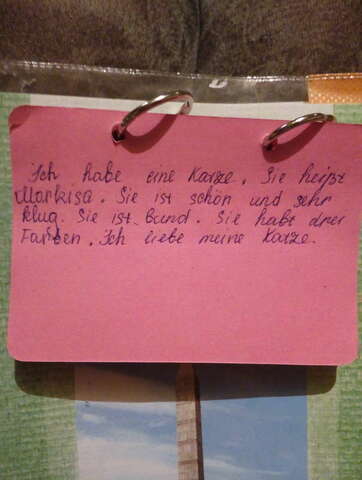 Ich habe eine Karze. Sie heißt
Markisa. Sie ist schön und sehr
klug. Sie ist Bund. Sie habt drei
Farben. Ich liebe meine Karze.